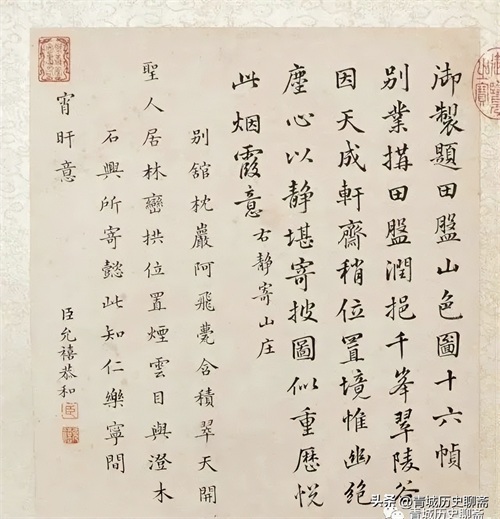 御製題田盤山色圖十六幀
别業搆田盤潤挹千峯翠陵谷
因天成軒齋稍位置境惟幽絶
塵心以静堪寄披圖似重歷悦
此烟霞意 右静寄山庄
别舘枕巖阿飛甍含積翠天開
聖人居林巒拱位置煙雲目與澄木
石興所寄懿此知仁樂寧問
宵旰意
臣允禧恭和
头条 @青城历史聊斋
青城历史聊斋